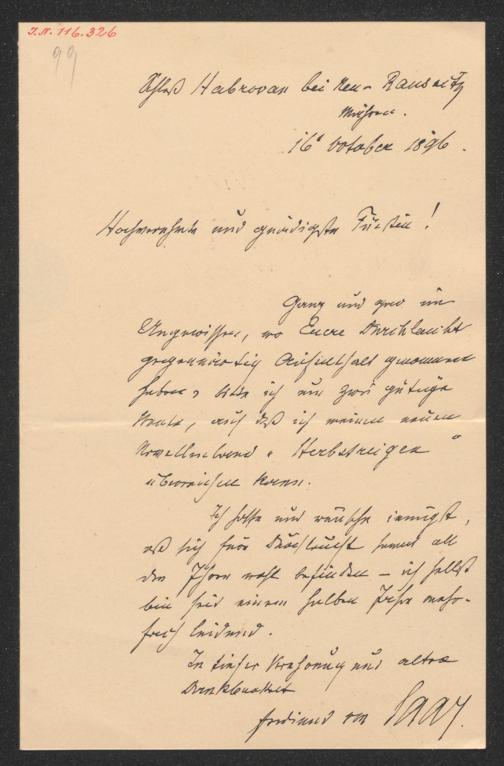 J.N. 116.326
99
Schloß Habrovan bei Neu-Raussnitz
Mähren.
16t October 1896.
Hochverehrte und gnädigste Fürstin!
Ganz und gar im
Ungewissen, wo Euere Durchlaucht
gegenwärtig Aufenthalt genommen
haben, bitte ich um zwei gütige
Worte, auf daß ich meinen neuen
Novellenband „Herbstreigen“
überreichen kann.
Ich hoffe und wünsche innigst,
daß sich Eure Durchlaucht sammt all
den Ihren wohl befinden – ich selbst
bin seit einem halben Jahre mehr-
fach leidend.
In tiefer Verehrung und alter
Dankbarkeit
Ferdinand von Saar.